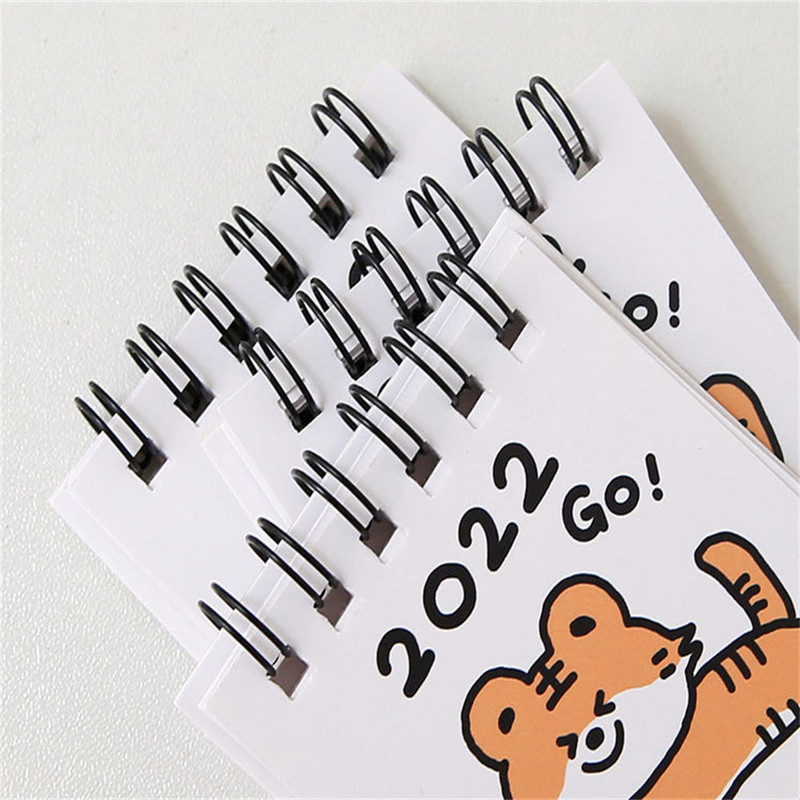 2022
Go!
o!